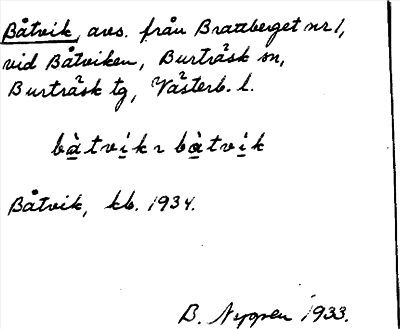 Båtvik, avs. från Brattberget nr 1,
vid Båtviken, Burträsk sn,
Burträsk tg, Västerb. l.
bàtvik ~ bàtvik
Båtvik, kb. 1934.
B. Nygren 1933.